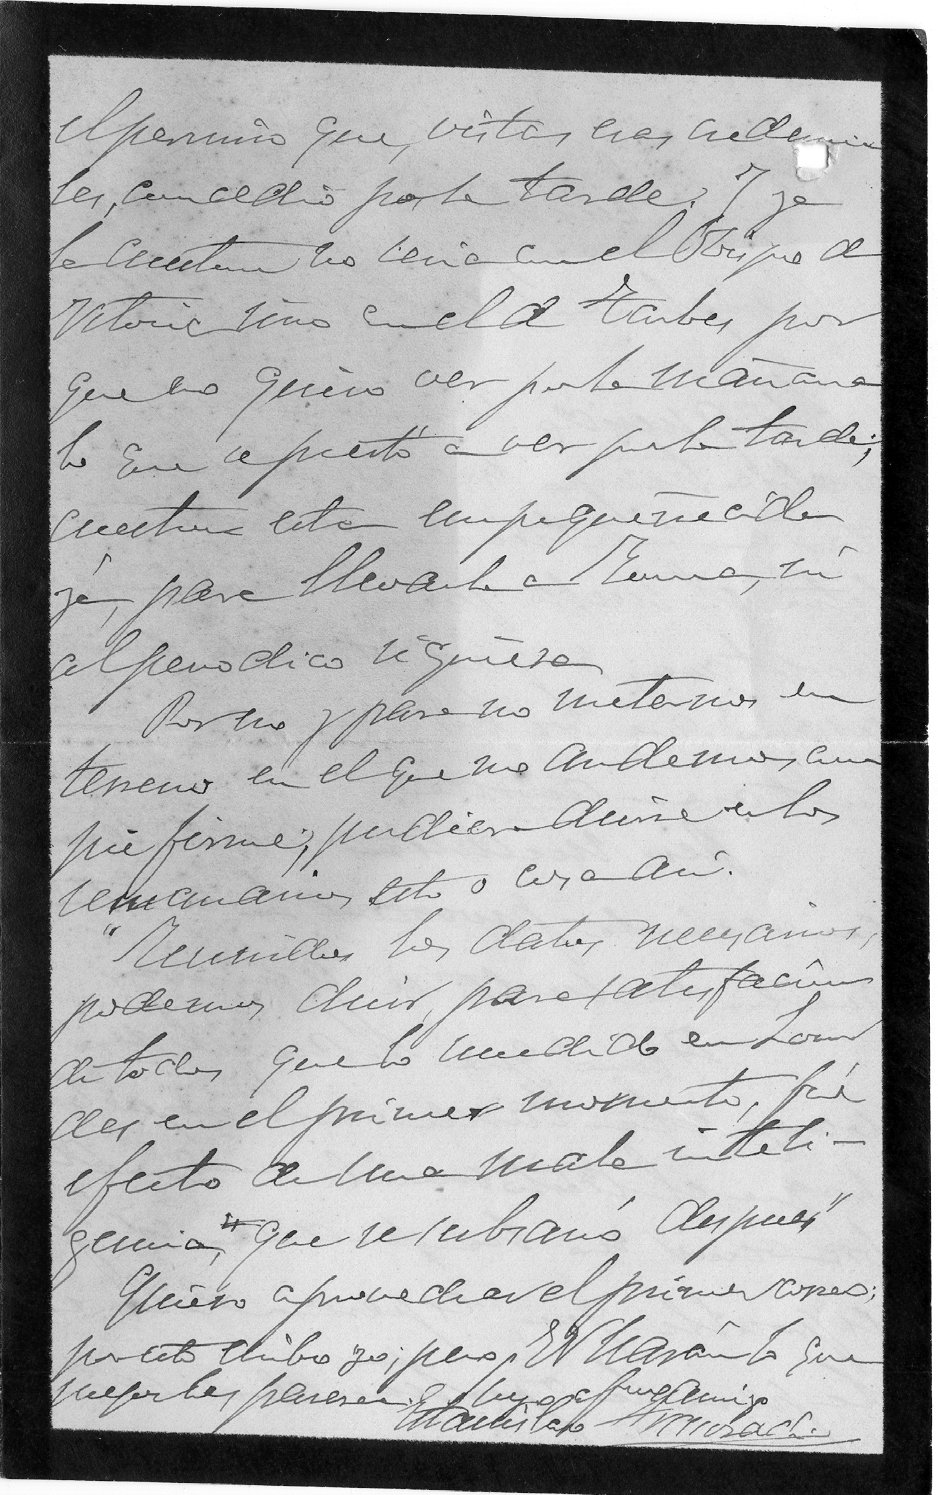 el permiso que, vistas esas credencia
les, concedió por la tarde. Y ya
la cuestion no sería con el Obispo de
Vitoria sino con el de Tarbes por
que no quiso ver por la mañana
lo que se prestó a ver por la tarde;
cuestion esta empequeñecida
ya, para llevarla a Roma, ni
al periodico siquiera
Por eso y para no meternos en
terreno en el que no andemos con
pie firme, pudiera decirse en los
semanarios esto o cosa así.
"Reunidos los datos necesarios,
podemos decir, para satisfacción
de todos que lo sucedido en Lour
des en el primer momento, fué
efecto de una mala inteli-
gencia, que se subsanó después"
Quiero aprovechar el primer correo;
por esto escribo yo; pero, VV harán lo que
mejor les parezca. Suyo afmo amigo
Estanislao